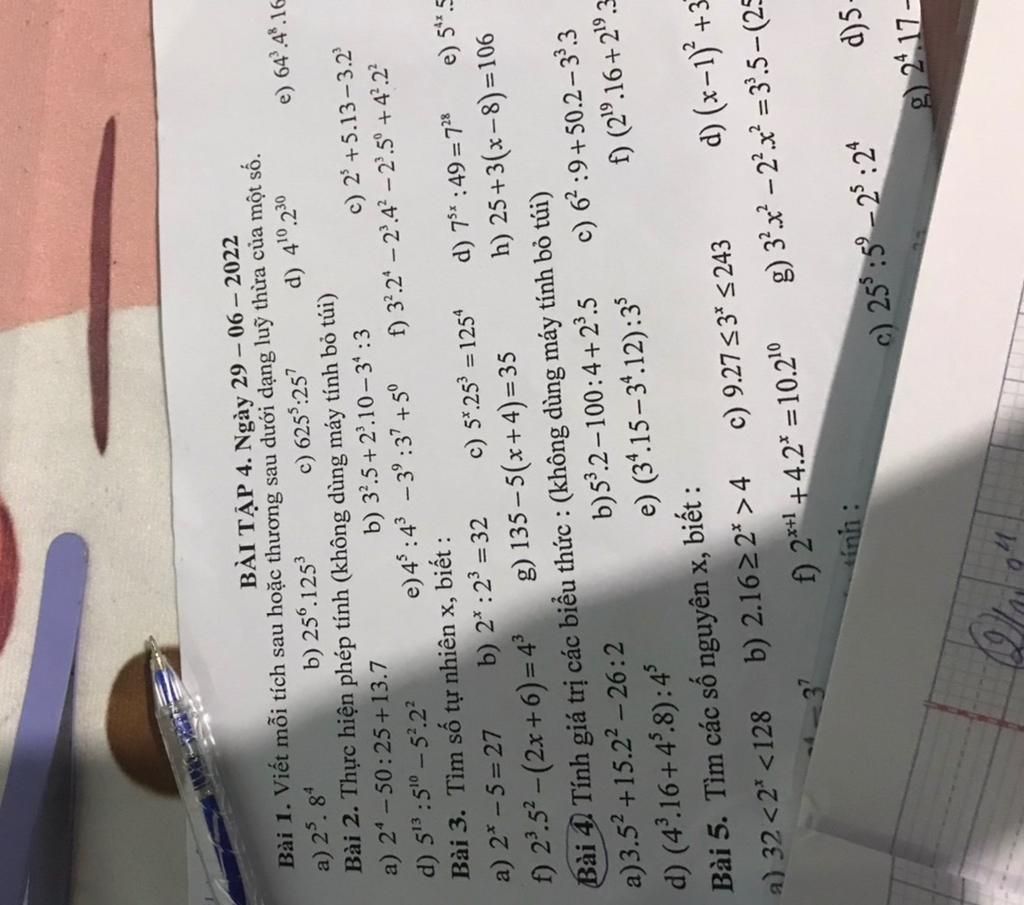 BÀI TẬP 4. Ngày 29 – 06 – 2022
Bài 1. Viết mỗi tích sau hoặc thương sau dưới dạng luỹ thừa của một số.
a) 2⁵. 8⁴ b) 25⁶.125³ c) 625⁵:25⁷ d) 4¹⁰.2³⁰ e) 64³.4⁸.16
Bài 2. Thực hiện phép tính (không dùng máy tính bỏ túi)
a) 2⁴ – 50:25+13.7 b) 3².5+2³.10–3⁴:3 c) 2⁵+5.13–3.2³
d) 5¹³:5¹⁰ – 5².2² e)4⁵:4³ – 3⁹:3⁷+5⁰ f) 3².2⁴ – 2³.4² – 2³.5⁰+4².2²
Bài 3. Tìm số tự nhiên x, biết :
a) 2ˣ – 5 = 27 b) 2ˣ : 2³ = 32 c) 5ˣ.25³ = 125⁴ d) 7⁵ˣ : 49 = 7²⁸ e) 5⁴ˣ.5
f) 2³.5² – (2x+6) = 4³ g) 135 – 5(x+4) = 35 h) 25+3(x–8) = 106
Bài 4. Tính giá trị các biểu thức : (không dùng máy tính bỏ túi)
a)3.5²+15.2² – 26:2 b)5³.2–100:4+2³.5 c) 6²:9+50.2–3³.3
d) (4³.16+4⁵.8):4⁵ e) (3⁴.15–3⁴.12):3⁵ f) (2¹⁹.16+2¹⁹.
Bài 5. Tìm các số nguyên x, biết :
a) 32<2ˣ<128 b) 2.16≥2ˣ>4 c) 9.27≤3ˣ≤243 d) (x–1)²+3
f) 2ˣ⁺¹+4.2ˣ = 10.2¹⁰ g) 3².x² – 2².x² = 3³.5 – (25
tính :
= 3⁷ c) 25⁵:5⁹ – 2⁵:2⁴ d)5
g) 2⁴.17–